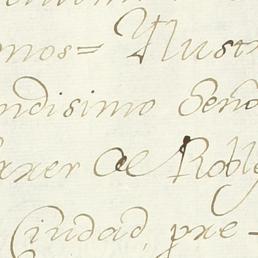 nos= Yllustr
ndisimo Seño
arer de Roble
Ciudad, pre-